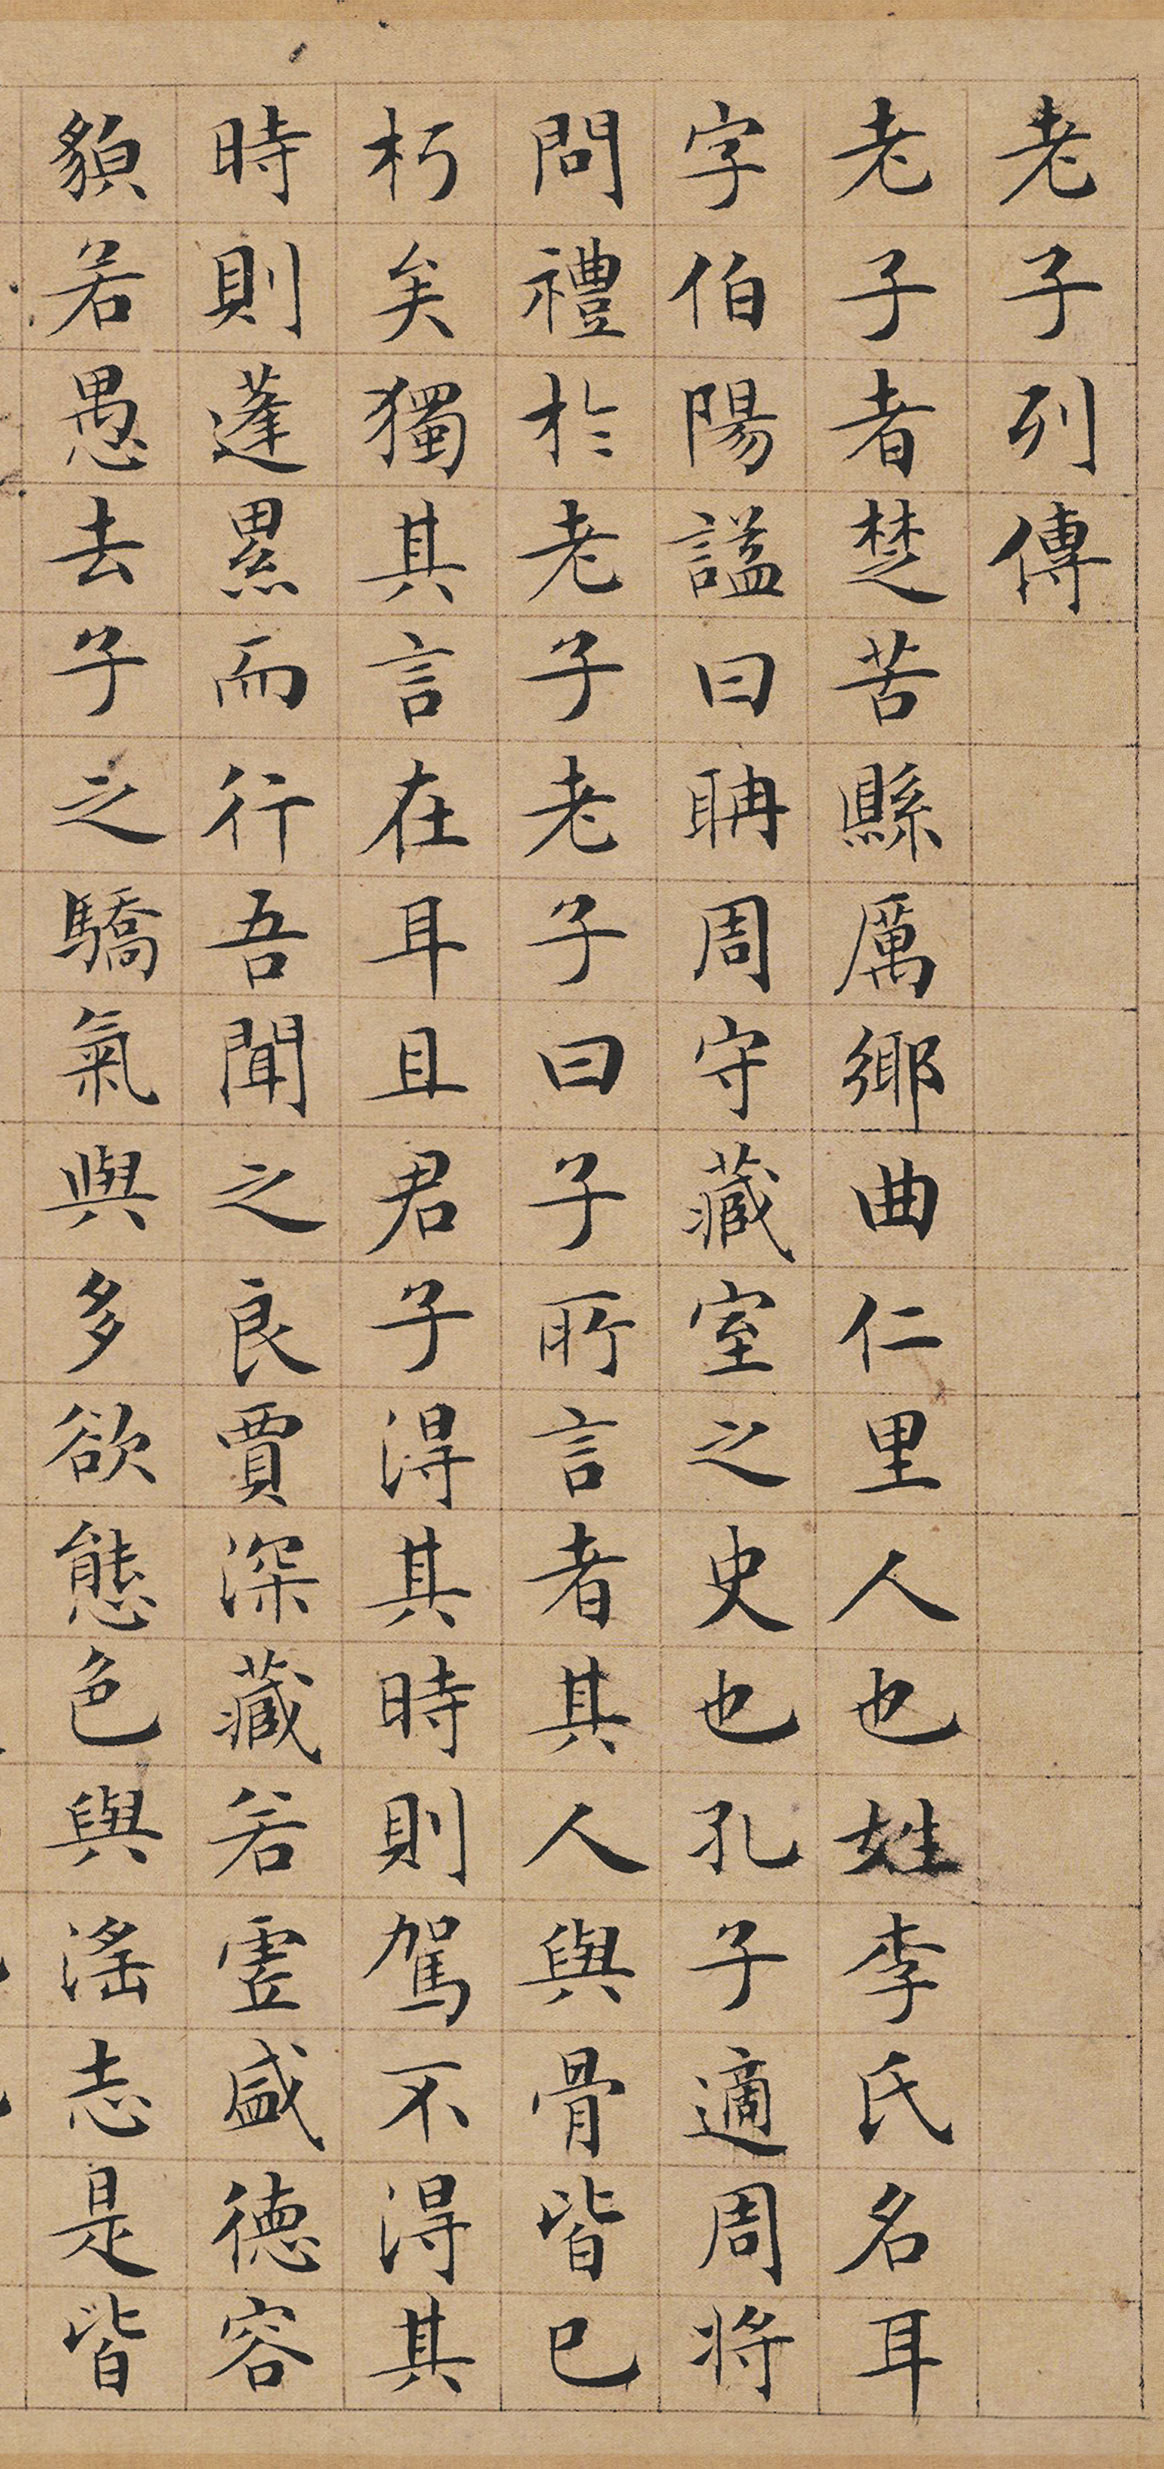 老子列傳
老子者楚苦縣厲鄉曲仁里人也姓李氏名耳
字伯陽謚曰聃周守藏室之史也孔子適周將
問禮於老子老子曰子所言者其人與骨皆已
朽矣獨其言在耳且君子得其時則駕不得其
時則蓬累而行吾聞之良賈深藏若虛盛德容
貌若愚去子之驕氣與多欲態色與淫志是皆